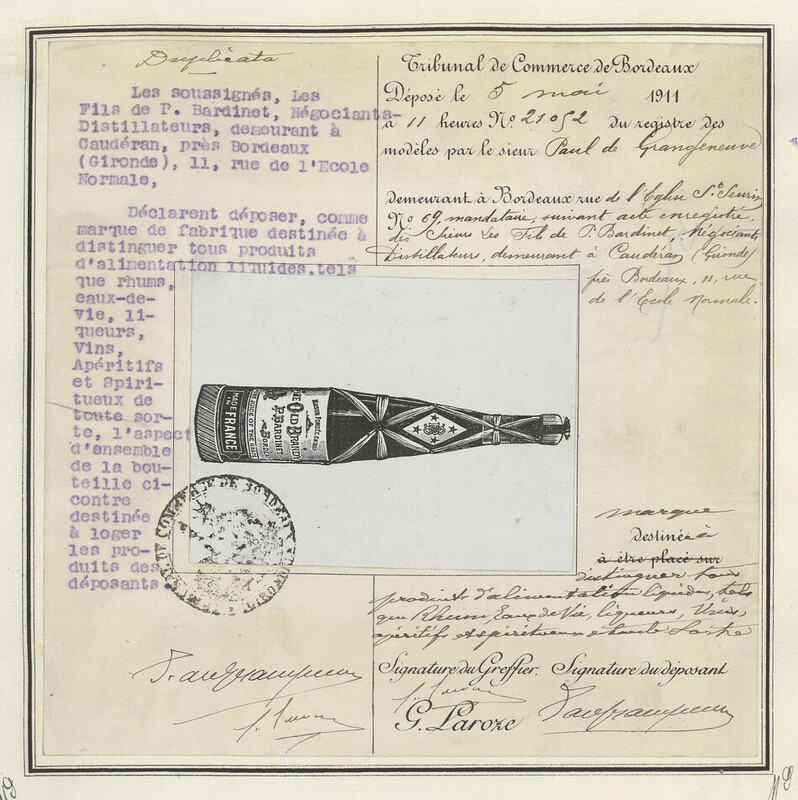 Duplicata
Les soussignés, Les
Fils de P. Bardinet, Négociants-
Distillateurs, demeurant à
Caudéran, près Bordeaux
(Gironde), 11, rue de l'Ecole
Normale,
Déclarent déposer, comme
marque de fabrique destinée à
distinguer tous produits
d'alimentation liquides, tels
que rhums,
eaux-de-
vie, li-
queurs,
Vins,
Apéritifs
et Spiri-
tueux de
toute sor-
te, l'aspect
d'ensemble
de la bou-
teille ci-
contre
destinée
à loger
les pro-
duits des
déposants.
Tribunal de Commerce de Bordeaux
Déposé le 5 mai 1911
à 11 heures No. 21052 du registre des
modèles par le sieur Paul de Grangeneuve
demeurant à Bordeaux rue de l'Eglise St. Seurin
No 69, mandataire, suivant acte enregistré,
des Sieurs Les Fils de P. Bardinet, Négociants
Distillateurs, demeurant à Caudéran (Gironde)
près Bordeaux, 11, rue
de l'Ecole Normale.
MADE IN
FRANCE
OLD BRANDY
P. BARDINET
BORDEAUX
DE COMMERCE DE BORDEAUX
marque
destinée à
à être placé sur
distinguer tous
produits d'alimentation liquides, tels
que Rhums, Eaux de Vie, liqueurs, Vins,
apéritifs et spiritueux de toute Sorte
Signature du Greffier. Signature du déposant
G. Laroze